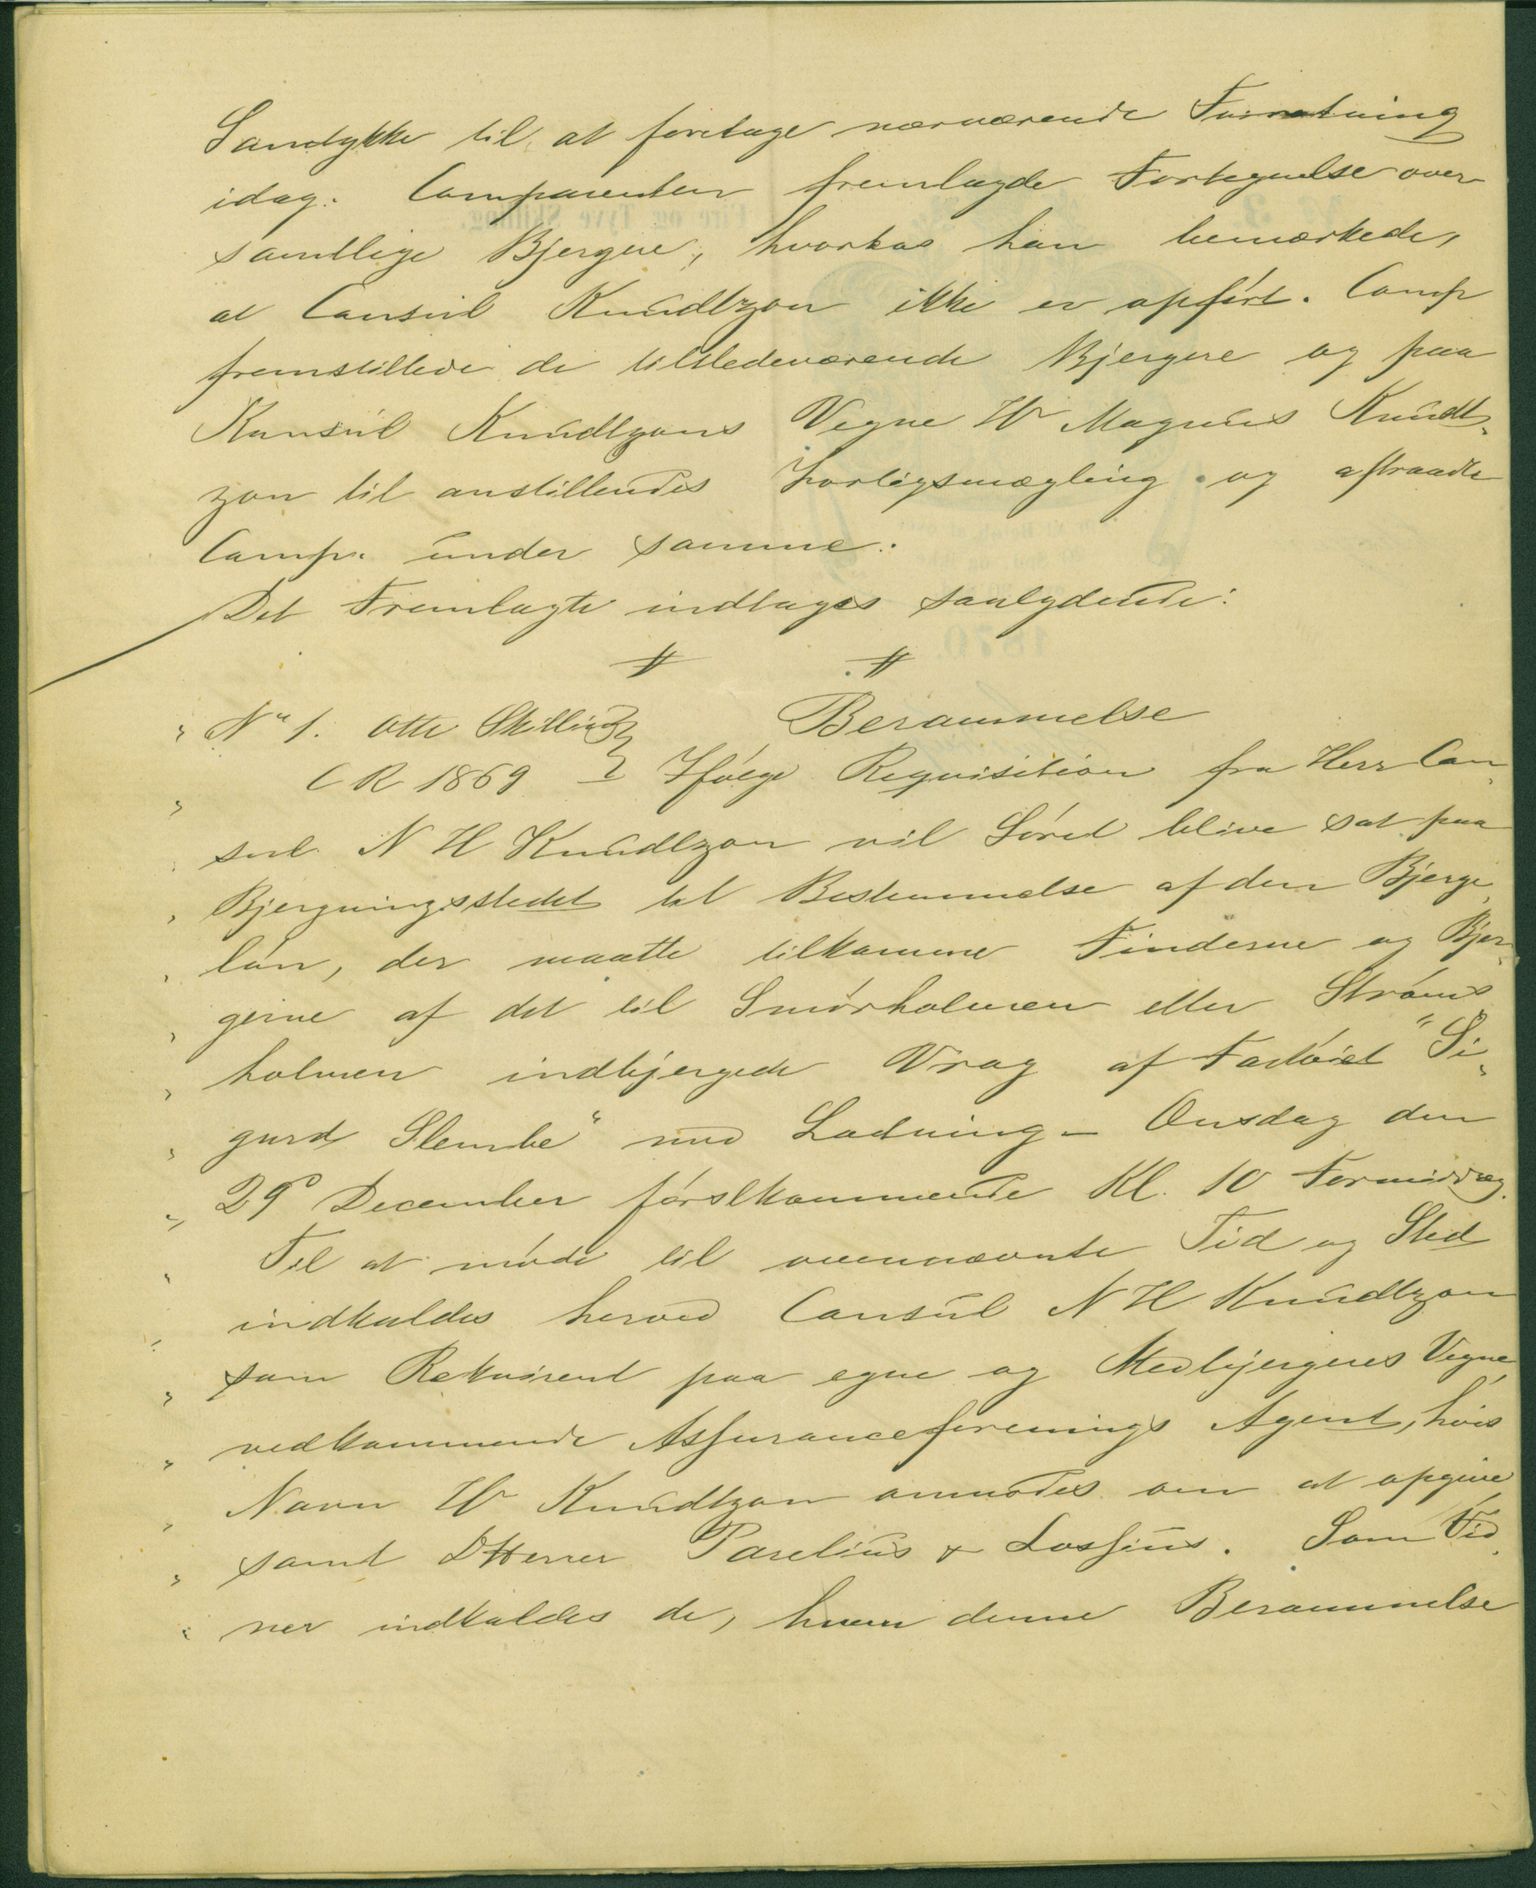 Samtykke til at foretage nærværende Forretning
idag. Comparenten fremlagde Fortegnelse over
samtlige Bjergere, hvorhos han bemærkede,
at Consul Knudtzon ikke er opført. Comp
fremstillede de tilstedeværende Bjergere og paa
Konsul Knudtzons Vegne W Magnus Knudt„
zon til anstillendes Forligsmægling og aftraadte
Comp. under samme.
Det Fremlagte indtages saalydende:
# #
„ No 1. otte Skilling } Berammelse
„ C R 1869 } Ifølge Requisition fra Herr Con„
„ sul N H Knudtzon vil Søret blive sat paa
„ Bjergningsstedet til Bestemmelse af den Bjerge„
„ løn, der maatte tilkomme Finderne og Bjer„
„ gerne af det til Smørholmen eller Strøms
„ holmen indbjergede Vrag af Fartøiet "Si„
„ gurd Slembe" med Ladning – Onsdag den
„ 29de December førstkommende Kl. 10 Formiddag.
„ Til at møde til ovennævnte Tid og Sted
„ indkaldes herved Consul N H Knudtzon
„ som Rekvirent paa egne og Medbjergeres Vegne,
„ vedkommende Assuranceforenings Agent, hvis
„ Navn W Knudtzon anmodes om at opgive
„ samt DHerrer Parelius & Lossius. Som Vid„
„ ner indkaldes de, hvem denne Berammelse